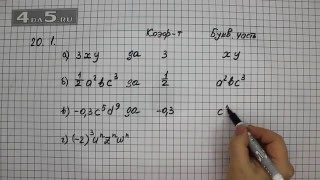 4da5.ru
20.1. Коэф-т Букв. часть
а) 3xy да 3 xy
б) 1/2 a²bc³ да 1/2 a²bc³
в) -0,3c⁵d⁹ да -0,3 c
г) (-2)³uⁿzⁿwⁿ